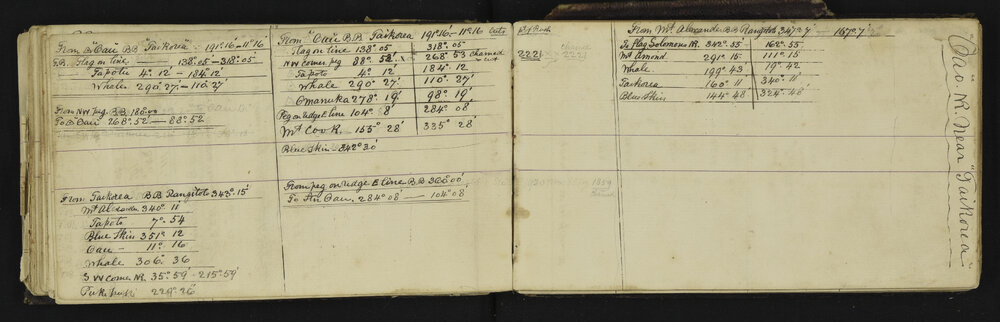 From "Oau" BB "Taikorea" 191°16'-11°16
F.B. Flag on line — 138.05-318.05
Tapotu 4°.12 - 184°.12
Whale 290°.27' - 110°.27'
From NW peg. BB 180.00
To B Oau 268°.52 — 88°.52
From Taikorea BB Rangitoto 343°.15'
Mt Alexander 340°.11'
Tapotu 7°.54
Blue Skin 351° 12
Oau - 11°. 16
Whale 306°. 36
SW corner NR. 35°.59' - 215°.59'
229°.26'
From "Oau" BB Taikorea 191°16'-11°16
Flag on line 138°.05 318°.05
NW corner peg 88°. 52'. x 268° 53 Chained
Tapotu 4°. 12' 184°. 12
Whale 290° 27' 110°. 27'
Omanuka 278°. 19' 98°. 19'
Peg on ridge E line 104°. 08' 284°. 08'
Mt Cook. 155° 28' 335° 28'
Blue Skin - 342°30'
From peg on ridge E line BB 360°.00'
To Stn Oau. 284°.08' — 104°.08'
2221
From Mt Alexander BB Rangitoto 347°.7' — 167°.7'
To flag Solomons NR. 342°.55' 162°.55'
Mt Amond 291°.15 111°.15
Whale 199°.43' 19°.42
Taikorea 160°.11' 340°.11'
Blue Skin 144°.48' 324°.48'
"Oau" NR. Near "Taikorea"